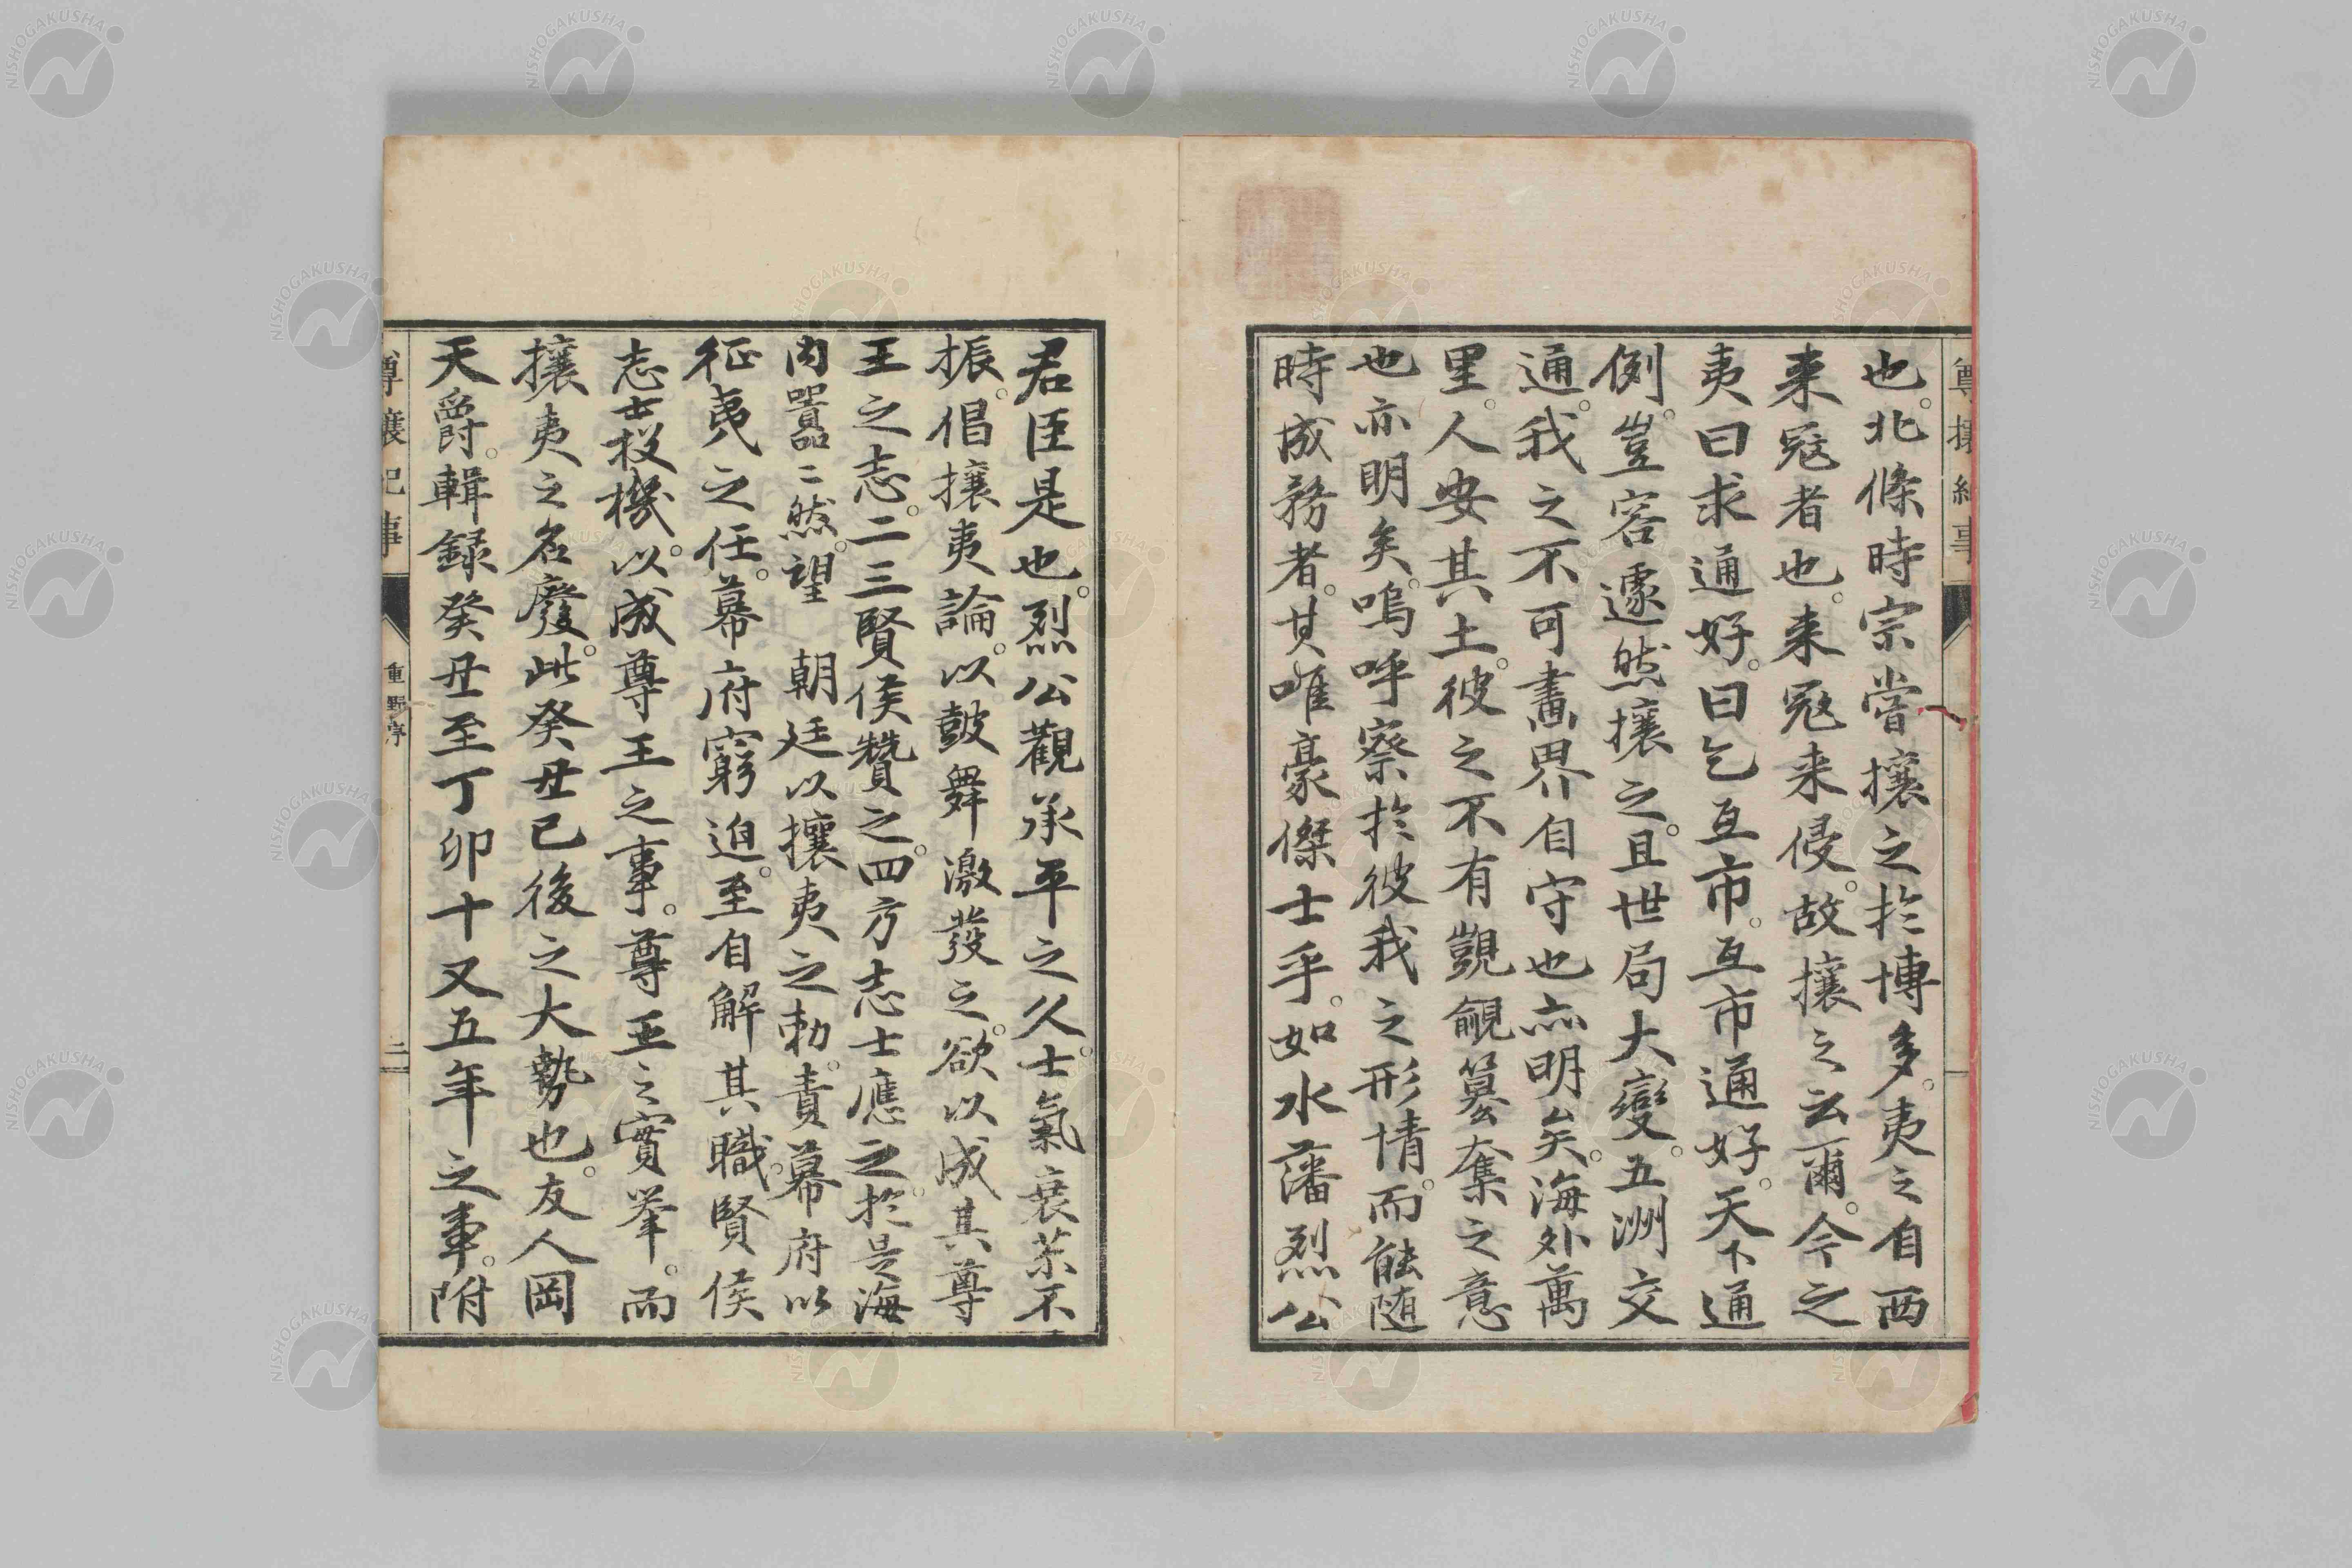 也。北條時宗嘗攘之於博多。夷之自西
来寇者也。来寇来侵。故攘之云爾。今之
夷曰求通好。曰乞互市。互市通好。天下通
例。豈容遽然攘之。且世局大變。五洲交
通。我之不可畫界自守也亦明矣。海外萬
里。人安其土。彼之不有覬覦簒奪之意
也亦明矣。嗚呼察於彼我之形情。而能随
時成務者。其唯豪傑士乎。如水藩烈公
君臣是也。烈公觀承平之久。士氣衰苶不
振。倡攘夷論。以鼓舞激發之。欲以成其尊
王之志。二三賢侯贊之。四方志士應之。於是海
内囂囂然。望　朝廷以攘夷之勅。責幕府以
征夷之任。幕府窮迫。至自解其職。賢侯
志士投機。以成尊王之事。尊王之實挙。而
攘夷之名廢。此癸丑已後之大勢也。友人岡
天爵。輯録癸丑至丁卯十又五年之事。附
尊攘紀事
重野序
二
NISHOGAKUSHA